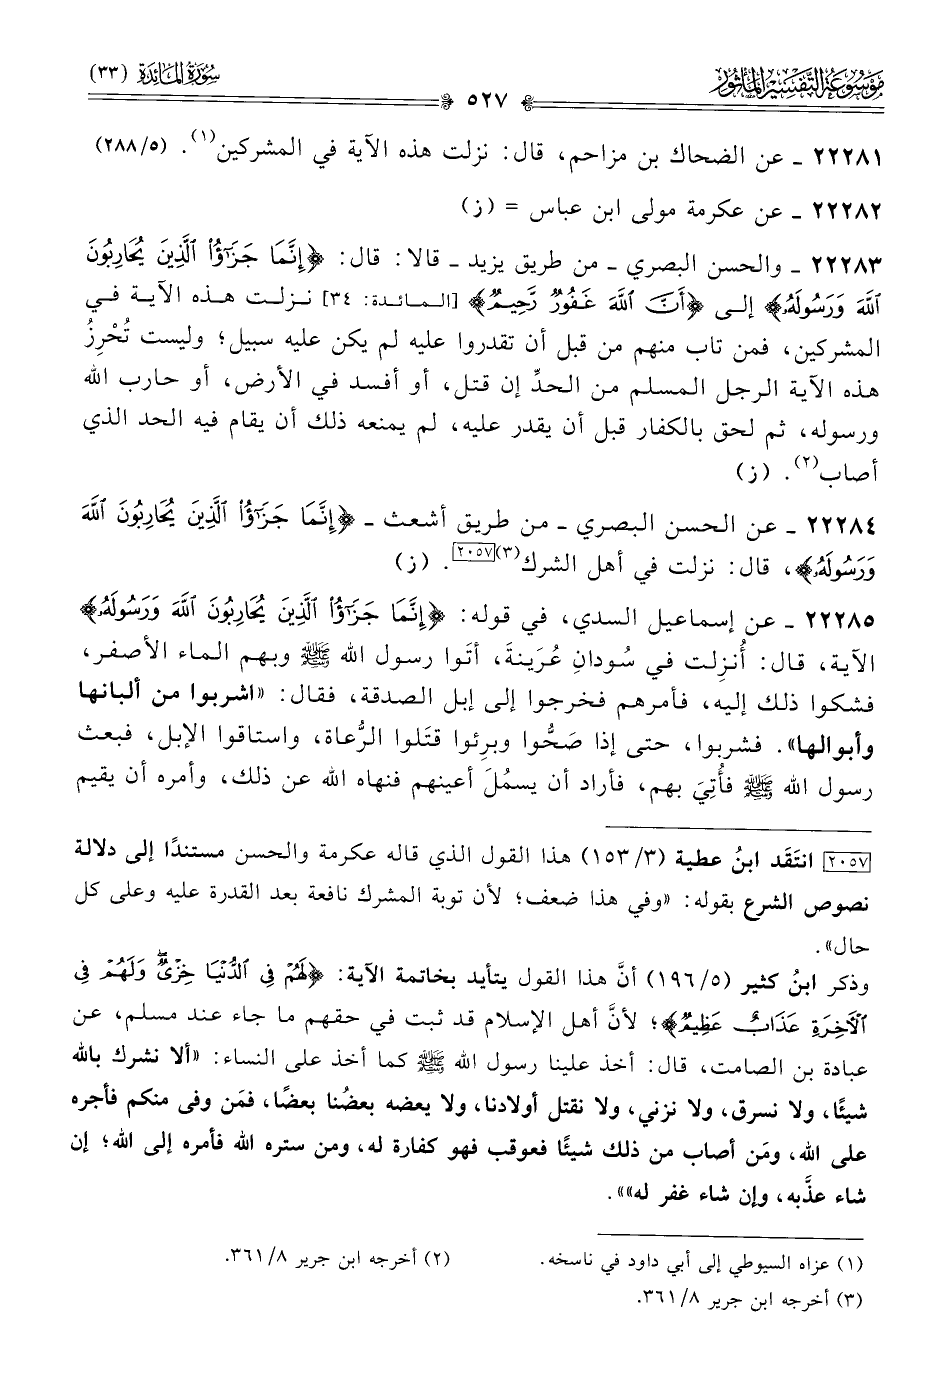 مَوْسُوعَةُ التَّفْسِيرِ المَأْثُور
سُورَةُ المَائِدَةِ (٣٣)
٥٢٧
٢٢٢٨١ ـ عن الضحاك بن مزاحم، قال: نزلت هذه الآية في المشركين(١). (٢٨٨/٥)
٢٢٢٨٢ ـ عن عكرمة مولى ابن عباس = (ز)
٢٢٢٨٣ ـ والحسن البصري ـ من طريق يزيد ـ قالا: قال: ﴿إِنَّمَا جَزَٰٓؤُاْ ٱلَّذِينَ يُحَارِبُونَ
ٱللَّهَ وَرَسُولَهُۥ﴾ إلى ﴿أَنَّ ٱللَّهَ غَفُورٌ رَّحِيمٌ﴾ [المائدة: ٣٤] نزلت هذه الآية في
المشركين، فمن تاب منهم من قبل أن تقدروا عليه لم يكن عليه سبيل؛ وليست تُحْرِزُ
هذه الآية الرجل المسلم من الحدِّ إن قتل، أو أفسد في الأرض، أو حارب الله
ورسوله، ثم لحق بالكفار قبل أن يقدر عليه، لم يمنعه ذلك أن يقام فيه الحد الذي
أصاب(٢). (ز)
٢٢٢٨٤ ـ عن الحسن البصري ـ من طريق أشعث ـ ﴿إِنَّمَا جَزَٰٓؤُاْ ٱلَّذِينَ يُحَارِبُونَ ٱللَّهَ
وَرَسُولَهُۥ﴾، قال: نزلت في أهل الشرك(٣)[٢٠٥٧]. (ز)
٢٢٢٨٥ ـ عن إسماعيل السدي، في قوله: ﴿إِنَّمَا جَزَٰٓؤُاْ ٱلَّذِينَ يُحَارِبُونَ ٱللَّهَ وَرَسُولَهُۥ﴾
الآية، قال: أُنزِلت في سُودانِ عُرَينةَ، أتَوا رسول الله ﷺ وبهم الماء الأصفر،
فشكوا ذلك إليه، فأمرهم فخرجوا إلى إبل الصدقة، فقال: «اشربوا من ألبانها
وأبوالها». فشربوا، حتى إذا صَحُّوا وبرِئوا قتَلوا الرُّعاة، واستاقوا الإبل، فبعث
رسول الله ﷺ فأُتِيَ بهم، فأراد أن يسمُلَ أعينهم فنهاه الله عن ذلك، وأمره أن يقيم
[٢٠٥٧] انتَقَد ابنُ عطية (١٥٣/٣) هذا القول الذي قاله عكرمة والحسن مستندًا إلى دلالة
نصوص الشرع بقوله: «وفي هذا ضعف؛ لأن توبة المشرك نافعة بعد القدرة عليه وعلى كل
حال».
وذكر ابنُ كثير (١٩٦/٥) أنَّ هذا القول يتأيد بخاتمة الآية: ﴿لَهُمْ فِى ٱلدُّنْيَا خِزْىٌ وَلَهُمْ فِى
ٱلْءَاخِرَةِ عَذَابٌ عَظِيمٌ﴾؛ لأنَّ أهل الإسلام قد ثبت في حقهم ما جاء عند مسلم، عن
عبادة بن الصامت، قال: أخذ علينا رسول الله ﷺ كما أخذ على النساء: «ألا نشرك بالله
شيئًا، ولا نسرق، ولا نزني، ولا نقتل أولادنا، ولا يعضه بعضُنا بعضًا، فمَن وفى منكم فأجره
على الله، ومَن أصاب من ذلك شيئًا فعوقب فهو كفارة له، ومن ستره الله فأمره إلى الله؛ إن
شاء عذَّبه، وإن شاء غفر له»».
(١) عزاه السيوطي إلى أبي داود في ناسخه. (٢) أخرجه ابن جرير ٣٦١/٨.
(٣) أخرجه ابن جرير ٣٦١/٨.